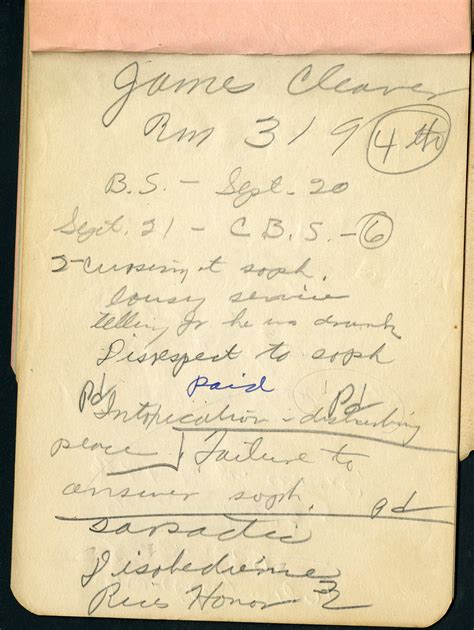 James Cleaver
Rm 319 4th
B.S. - Sept. 20
Sept. 21 - C.B.S. - 6
2-cursing at soph.
lousy service
telling Jr he was drunk
Disrespect to soph
Pd paid Pd
Intoxication - disturbing
peace Failure to
answer soph. pd
sarsactic
Disobedience
Rices Honor